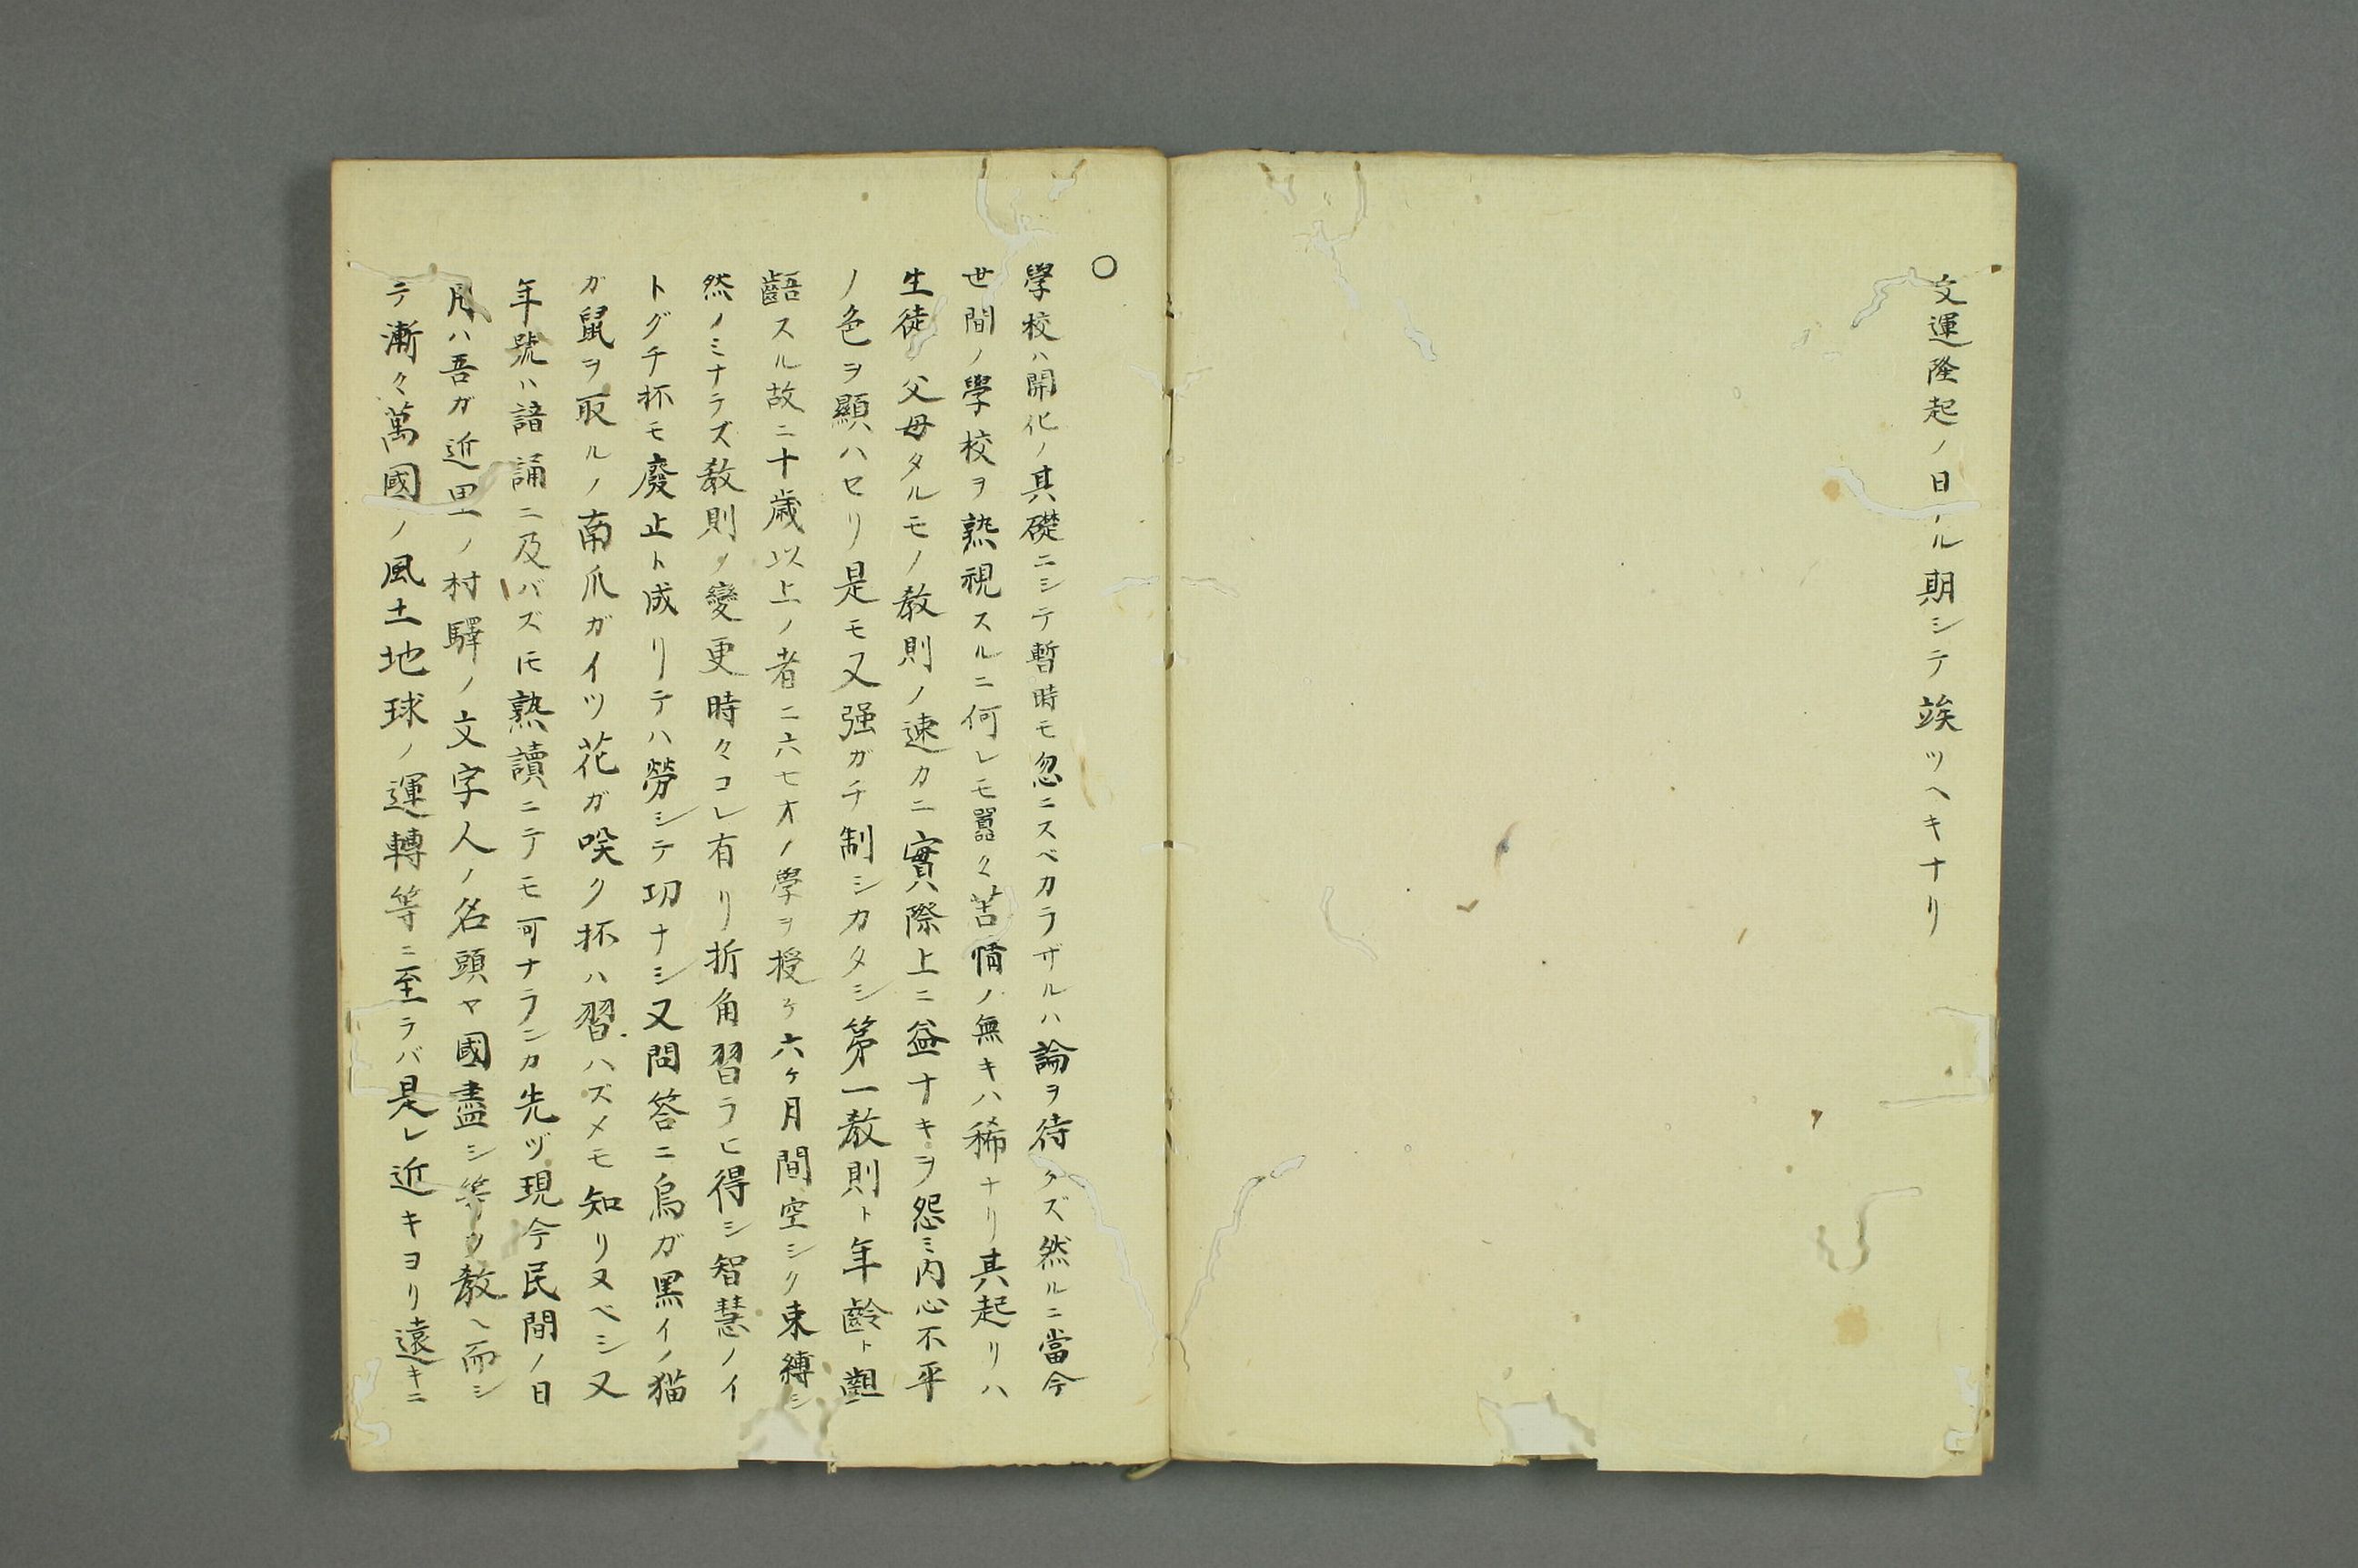 文運隆起ノ日ノル期シテ竢ツヘキナリ
○
學校ハ開化ノ其礎ニシテ暫時モ忽ニスベカラザルハ論ヲ待タズ然ルニ當今
世間ノ學校ヲ熟視スルニ何レモ囂々苦情ノ無キハ稀ナリ其起リハ
生徒ノ父母タルモノ教則ノ速カニ實際上ニ益ナキヲ怨ミ内心不平
ノ色ヲ顯ハセリ是モ又强ガチ制シカタシ第一教則ト年齡ト齟
齬スル故ニ十歳以上ノ者ニ六七才ノ學ヲ授ケ六ケ月間空シク束縛シ
然ノミナラズ教則ノ變更時々コレ有リ折角習ラヒ得シ智慧ノイ
トグチ抔モ廢止ト成リテハ勞シテ功ナシ又問答ニ烏ガ黒イノ猫
ガ鼠ヲ取ルノ南爪ガイツ花ガ咲ク抔ハ習ハズメモ知リヌベシ又
年號ハ諳誦ニ及バズ𪜈熟讀ニテモ可ナランカ先ヅ現今民間ノ日
用ハ吾ガ近里ノ村驛ノ文字人ノ名頭ヤ國盡シ等ヲ教ヘ而シ
テ漸々萬國ノ風土地球ノ運轉等ニ至ラバ是レ近キヨリ遠キニ